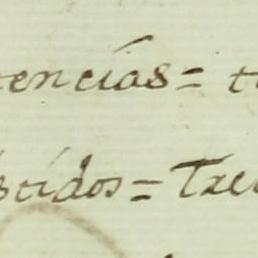 tencias= t
stidos= Tre